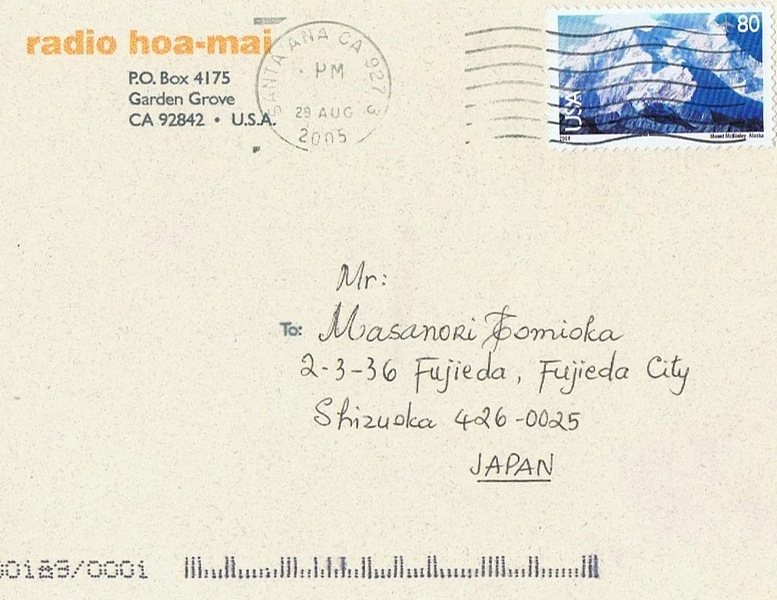 radio hoa-mai
P.O. Box 4175
Garden Grove
CA 92842 • U.S.A.
SANTA ANA CA 927 3
PM
29 AUG
2005
80
USA
Mount McKinley, Alaska
Mr:
To: Masanori Tomioka
2-3-36 Fujieda, Fujieda City
Shizuoka 426-0025
JAPAN